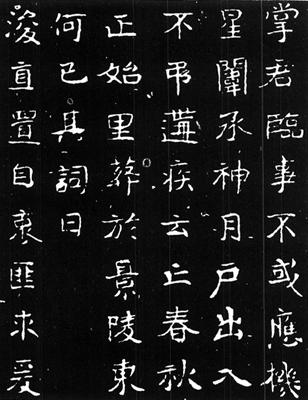 掌者臨事不或應機
星闈承神月戶出入
不弔遘疾云亡春秋
正始里葬於景陵東
何已其詞曰
浚直置自衷匪求爰